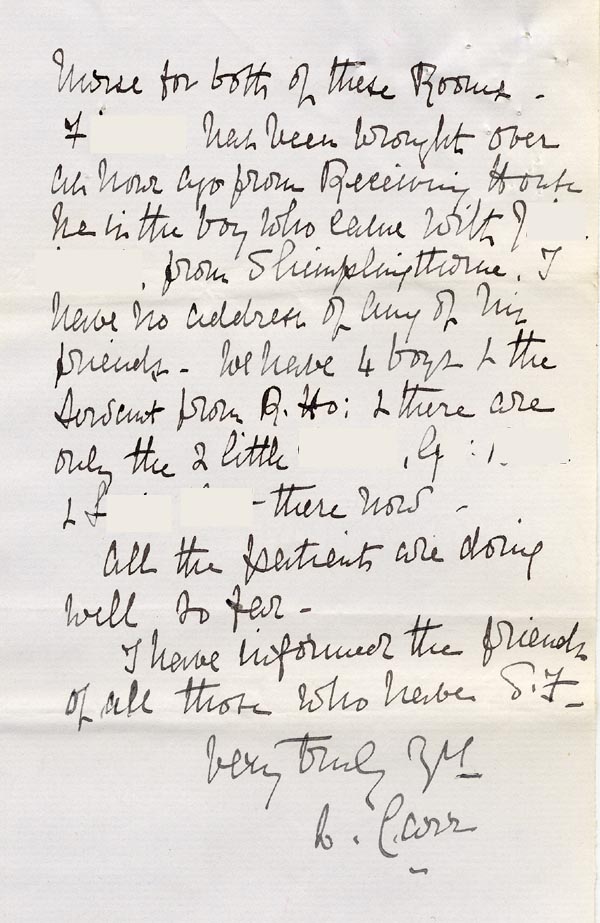 Nurse for both of these Rooms -
F has been brought over
an hour ago from Receiving House
he is the boy who came with J
, from Shimplingthorne. I
have no address of any of his
friends - We have 4 boys & the
Servant from R. Ho: & there are
only the 2 little , G : 1.
& there now -
All the patients are doing
well so far -
I have informed the friends
of all those who have S. F-
very truly yrs
Carr